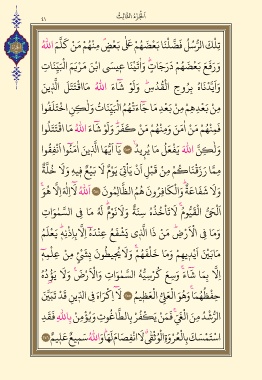 الجزء الثالث
٤١
تِلْكَ الرُّسُلُ فَضَّلْنَا بَعْضَهُمْ عَلٰى بَعْضٍۢ مِنْهُمْ مَنْ كَلَّمَ اللّٰهُ
وَرَفَعَ بَعْضَهُمْ دَرَجَاتٍۜ وَاٰتَيْنَا عٖيسَى ابْنَ مَرْيَمَ الْبَيِّنَاتِ
وَاَيَّدْنَاهُ بِرُوحِ الْقُدُسِۜ وَلَوْ شَٓاءَ اللّٰهُ مَا اقْتَتَلَ الَّذٖينَ
مِنْ بَعْدِهِمْ مِنْ بَعْدِ مَا جَٓاءَتْهُمُ الْبَيِّنَاتُ وَلٰكِنِ اخْتَلَفُوا
فَمِنْهُمْ مَنْ اٰمَنَ وَمِنْهُمْ مَنْ كَفَرَۜ وَلَوْ شَٓاءَ اللّٰهُ مَا اقْتَتَلُوا
وَلٰكِنَّ اللّٰهَ يَفْعَلُ مَا يُرٖيدُ ﴿٢٥٣﴾ يَٓا اَيُّهَا الَّذٖينَ اٰمَنُٓوا اَنْفِقُوا
مِمَّا رَزَقْنَاكُمْ مِنْ قَبْلِ اَنْ يَأْتِيَ يَوْمٌ لَا بَيْعٌ فٖيهِ وَلَا خُلَّةٌ
وَلَا شَفَاعَةٌۜ وَالْكَافِرُونَ هُمُ الظَّالِمُونَ ﴿٢٥٤﴾ اَللّٰهُ لَٓا اِلٰهَ اِلَّا هُوَۚ
اَلْحَيُّ الْقَيُّومُۚ لَا تَأْخُذُهُ سِنَةٌ وَلَا نَوْمٌۜ لَهُ مَا فِي السَّمٰوَاتِ
وَمَا فِي الْاَرْضِۜ مَنْ ذَا الَّذٖي يَشْفَعُ عِنْدَهُٓ اِلَّا بِاِذْنِهٖۜ يَعْلَمُ
مَا بَيْنَ اَيْدٖيهِمْ وَمَا خَلْفَهُمْۚ وَلَا يُحٖيطُونَ بِشَيْءٍ مِنْ عِلْمِهٖٓ
اِلَّا بِمَا شَٓاءَۚ وَسِعَ كُرْسِيُّهُ السَّمٰوَاتِ وَالْاَرْضَۚ وَلَا يَؤُ۫دُهُ
حِفْظُهُمَاۚ وَهُوَ الْعَلِيُّ الْعَظٖيمُ ﴿٢٥٥﴾ لَٓا اِكْرَاهَ فِي الدّٖينِ قَدْ تَبَيَّنَ
الرُّشْدُ مِنَ الْغَيِّۚ فَمَنْ يَكْفُرْ بِالطَّاغُوتِ وَيُؤْمِنْ بِاللّٰهِ فَقَدِ
اسْتَمْسَكَ بِالْعُرْوَةِ الْوُثْقٰىۗ لَا انْفِصَامَ لَهَاۜ وَاللّٰهُ سَمٖيعٌ عَلٖيمٌ ﴿٢٥٦﴾